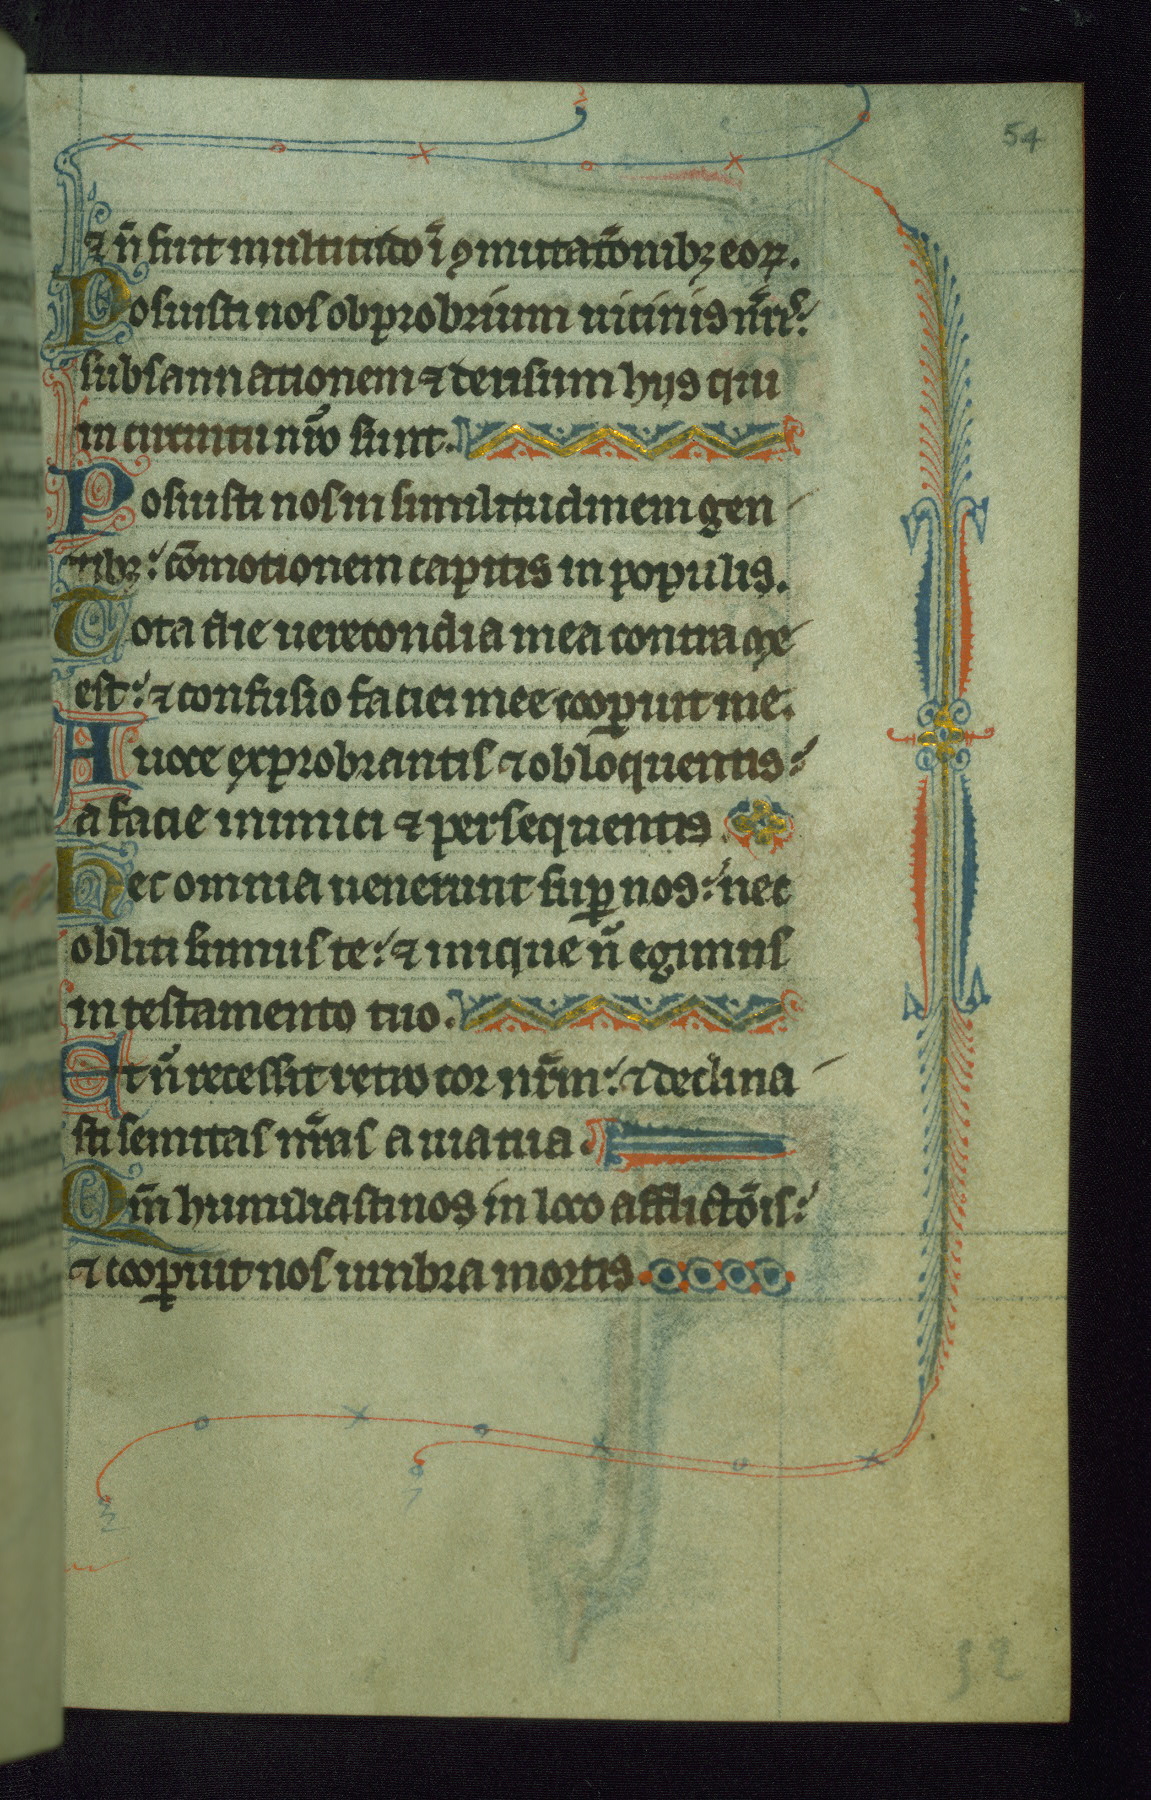 54
⁊ n̄ fuit multitudo ī ꝯmutatōnibꝫ eoꝝ.
Posuisti nos obprobrium uicinis nr̄is:
subsannationem ⁊ derisum hijs qui
in circuitu nr̄o sunt.
Posuisti nos in similitudinem gen
tibꝫ: cōmotionem capitis in populis.
Tota die uerecondia mea contra me
est: ⁊ confusio faciei mee cooꝑuit me.
A uoce exprobrantis ⁊ obloquentis:
a facie inimici ⁊ persequentis
Hec omnia uenerunt suꝑ nos: nec
obliti sumus te: ⁊ inique n̄ egimus
in testamento tuo.
Et n̄ recessit retro cor nr̄m: ⁊ declina
sti semitas nr̄as a uia tua.
Qm̄ humiliasti nos in loco afflictōis:
⁊ cooꝑuit nos umbra mortis
52